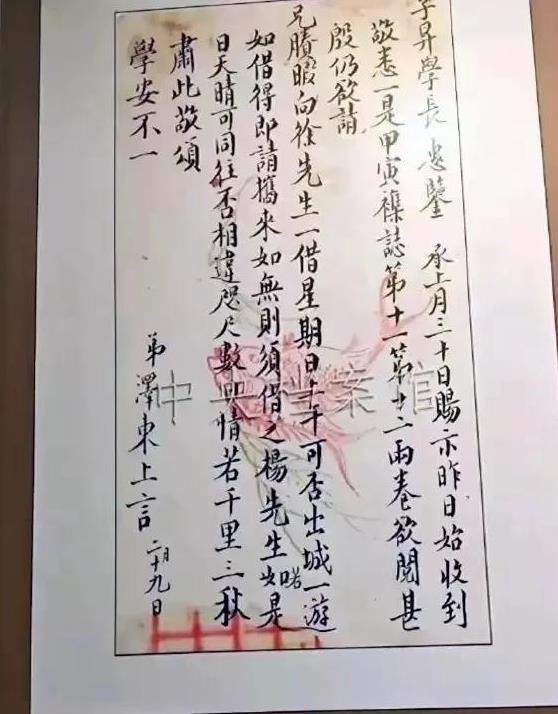 子昇學長 惠鑒 承上月三十日賜示昨日始收到
敬悉一是甲寅襍誌第十一第十二兩卷欲閱甚
殷仍欲請
兄賸暇向徐先生一借星期日上午可否出城一遊
如借得即請攜來如無則須借之楊先生 若是
日天晴可同往否相違咫尺數日情若千里三秋
肅此敬頌
學安不一
弟澤東上言 二月十九日
中央档案馆